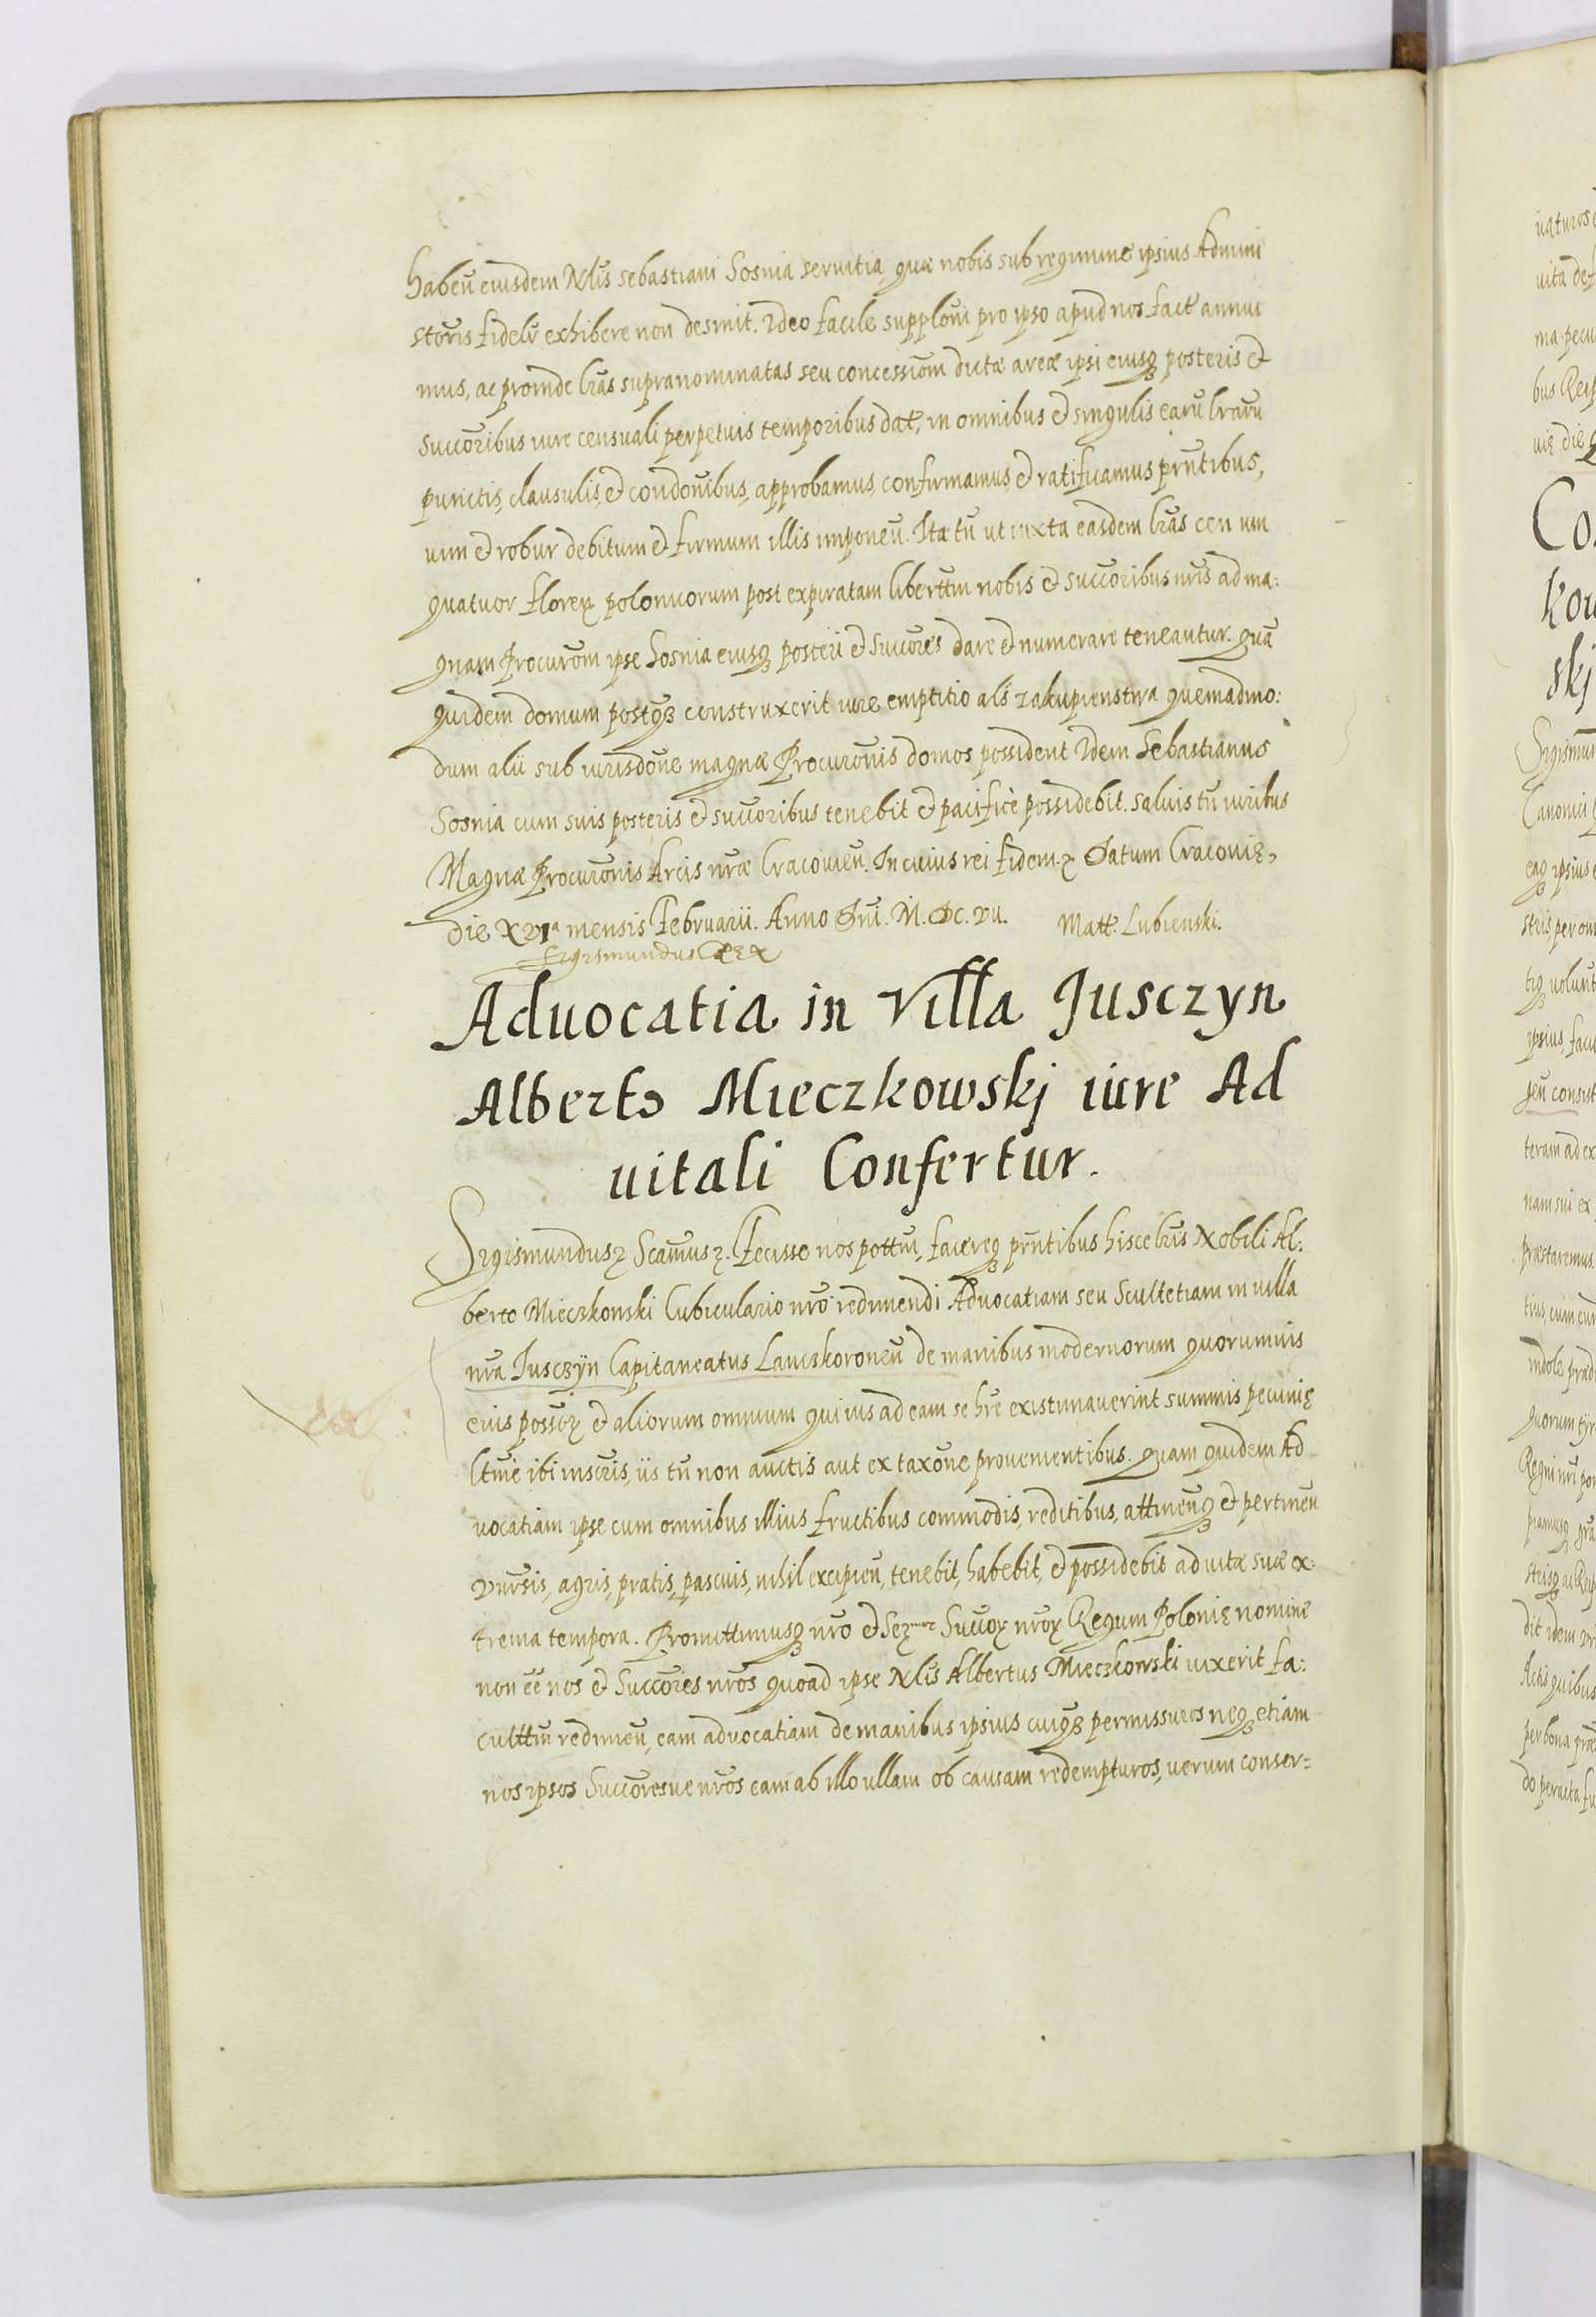 habeū eiusdem Nlis Sebastiani Sosnia seruitia, quæ nobis sub regimine ipsius Admini
storis fidelr exhibere non desinit. Ideo facile supploni pro ipso apud nos fact annui
mus, ac proinde lras supranominatas seu concessiom dictæ areæ ipsi eiusq posteris et
succoribus iure censuali perpetuis temporibus dat, in omnibus et singulis earū lrarū
punctis, clausulis, et condonibus, approbamus, confirmamus, et ratificamus pntibus,
uim et robur debitum et firmum illis imponeū. Ita tn ut iuxta easdem lras censum
quatuor florenz polonicorum post expiratam liberttm nobis et succoribus nris ad ma:
gnam Procurom ipse Sosnia eiusq posteri et succores dare et numerare teneantur. quā
quidem domum postq construxerit iure emptitio als zakupienstwa quemadmo:
dum alii sub iurisdone magnæ Procuronis domos possident Idem Sebastianus
Sosnia cum suis posteris et succoribus tenebit et pacifice possidebit. Saluis tn iuribus
Magnæ Procuronis Arcis nræ Cracouieū. In cuius rei fidem. Datum Cracouię,
die XVIa mensis Februarii. Anno Dni. M. DC. VII. Matt. Lubienski.
Sigismundus Rex
Aduocatia in Villa Jusczyn
Alberto Mieczkowskj iure Ad
uitali Confertur.
Sigismundus Scamus. Fecisse nos pottm, facereq pntibus hisce lris Nobili Al:
berto Mieczkowski Cubiculario nro redimendi Aduocatiam seu Scultetiam in uilla
nra Jusczyn Capitaneatus Lanczkoroneū de manibus modernorum quorumuis
eius possorz et aliorum omnium qui ius ad eam se hre existimauerint summis pecunię
ltme ibi inscris, iis tn non auctis aut ex taxone prouenientibus. quam quidem Ad
uocatiam ipse cum omnibus illius fructibus commodis, reditibus, attineūq et pertineū
vnrsis, agris, pratis, pascuis, nihil excipieū, tenebit, habebit, et possidebit ad uitæ suæ ex:
trema tempora. Promittimusq nro et Sermorz Succorz nrorz Regum Polonię nomine
non ee nos et Succores nros quoad ipse Nlis Albertus Mieczkowski uixerit fa:
culttm redimeū, eam aduocatiam de manibus ipsius cuiq permissuros neq etiam
nos ipsos Succoresue nros eam ab illo ullam ob causam redempturos, uerum conser=